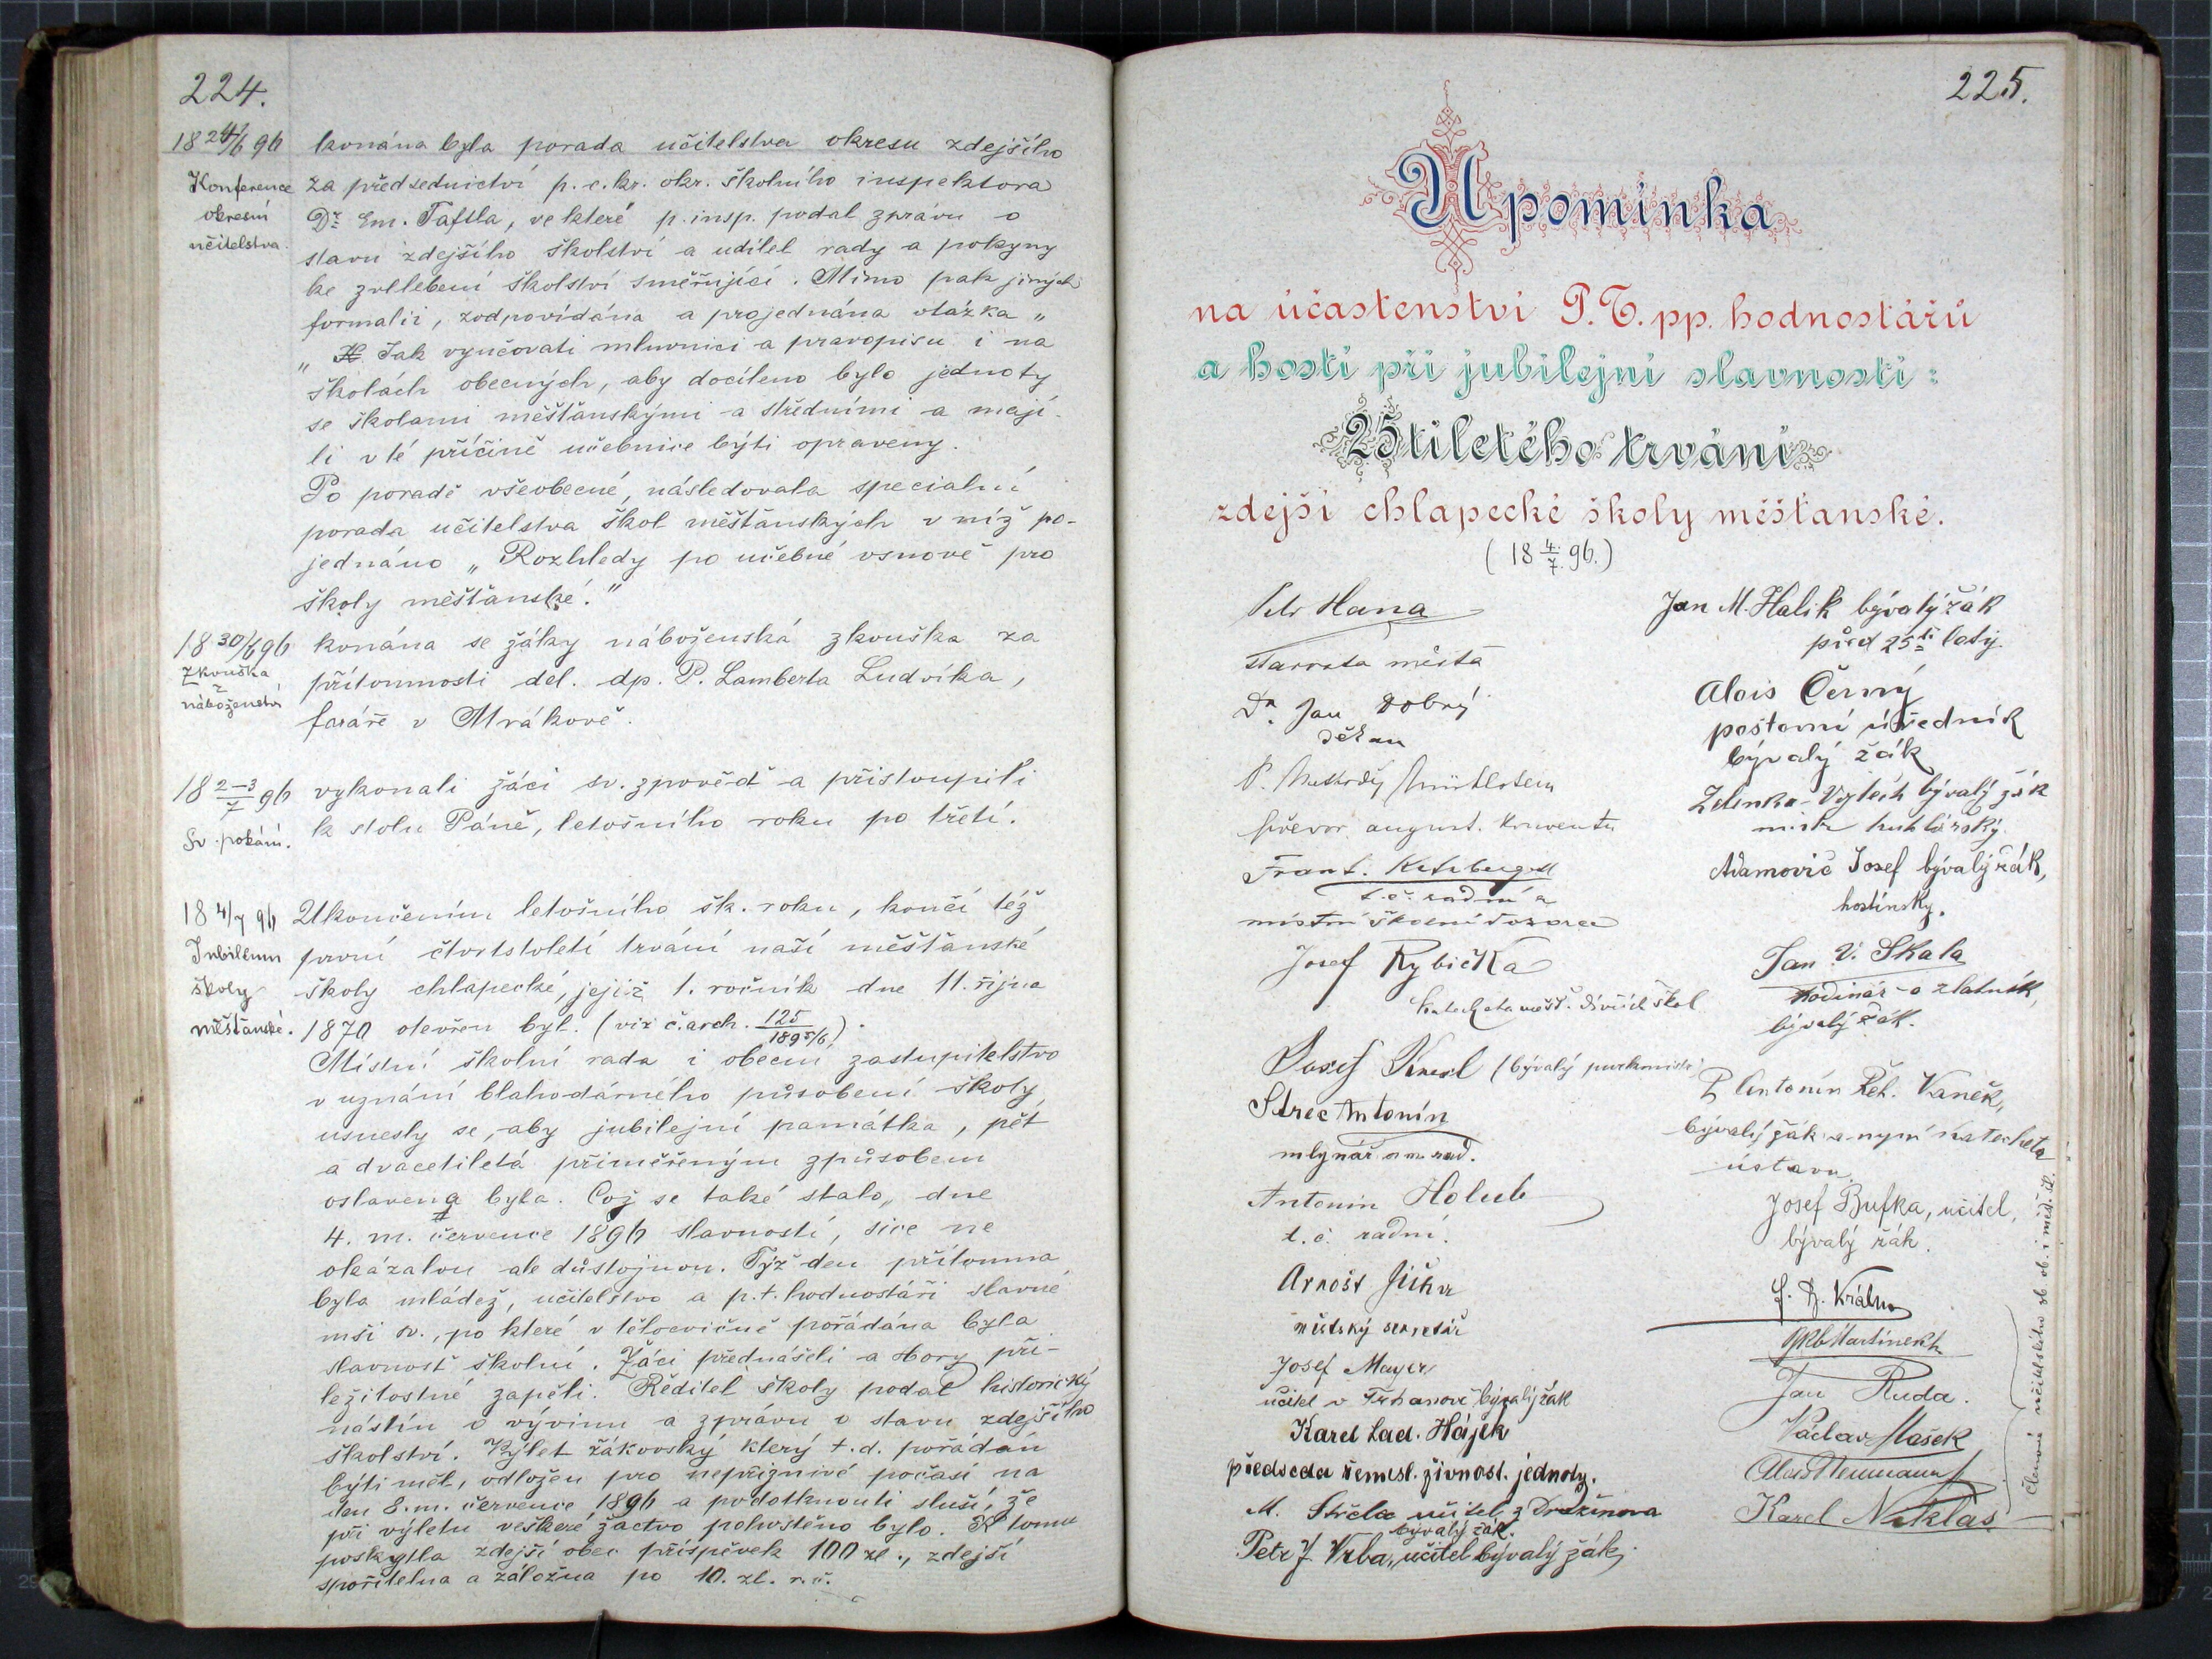 224.
18 24/6 96
Konference
okresní
učitelstva.
konána byla porada učitelstva okresu zdejšího
za předsednictví p. c. kr. okr. školního inspektora
Dr Em. Taftla, ve které p. insp. podal zprávu o
stavu zdejšího školství a udílel rady a pokyny
ke zvelebení školství směřující. Mimo pak jiných
formalií, zodpovídána a projednána otázka „
„ Jak vyučovati mluvnici a pravopisu i na
školách obecných, aby docíleno bylo jednoty
se školami měšťanskými a středními a mají-
li v té příčině učebnice býti opraveny.
Po poradě všeobecné, následovala specialní
porada učitelstva škol měšťanských v níž po-
jednáno „Rozhledy po učebné osnově pro
školy měšťanské."
18 30/6 96
Zkouška
z
náboženství
konána se žáky náboženská zkouška za
přítomnosti del. dp. P. Lamberta Ludvíka,
faráře v Mrákově.
18 2–3/7 96
Sv. pokání.
vykonali žáci sv. zpověď a přistoupili
k stolu Páně, letošního roku po třetí.
18 4/7 96
Jubileum
školy
měšťanské.
Ukončením letošního šk. roku, končí též
první čtvrtstoletí trvání naší měšťanské
školy chlapecké, jejíž 1. ročník dne 11. října
1870 otevřen byl. (viz č. arch. 125/1895/6).
Místní školní rada i obecní zastupitelstvo
v uznání blahodárného působení školy
usnesly se, aby jubilejní památka, pět
a dvacetiletá přiměřeným způsobem
oslavena byla. Což se také stalo, dne
4. m. července 1896 slavností, sice ne
okázalou ale důstojnou. Týž den přítomna
byla mládež, učitelstvo a p. t. hodnostáři slavné
mši sv., po které v tělocvičně pořádána byla
slavnosť školní. Žáci přednášeli a sbory pří-
ležitostné zapěli. Ředitel školy podal historický
nástin o vývinu a zprávu o stavu zdejšího
školství. Výlet žákovský který t. d. pořádán
býti měl, odložen pro nepříznivé počasí na
den 8. m. července 1896 a podotknouti sluší, že
při výletu veškeré žactvo pohostěno bylo. K tomu
poskytla zdejší obec příspěvek 100 zl., zdejší
spořitelna a záložna po 10. zl. r. č.
225.
Upomínka
na účastenství P. T. pp. hodnostářů
a hostí při jubilejní slavnosti:
25tiletého trvání
zdejší chlapecké školy měšťanské.
(18 4/7. 96.)
Petr Hana
starosta města
Dr. Jan Dobrý
děkan
P.
převor august. konventu
Frant.
t. č. radní a
místní školní dozorce
Josef Rybička
katecheta měšť. dívčích škol
Josef (bývalý purkmistr)
Strec Antonín
mlynář a m. rad.
Antonín Holub
t. č. radní.
Arnošt Jícha
městský sekretář
Josef Mayer
učitel v Trhanově bývalý žák
Karel Lad. Hájek
předseda řemesl. živnost. jednoty.
M. Střela učitel z Draženova
bývalý žák.
Petr J. Vrba, učitel bývalý žák
Jan M. Halík bývalý žák
před 25ti lety.
Alois Černý
poštovní úředník
bývalý žák
Zelenka Vojtěch bývalý žák
mistr truhlářský
Adamovič Josef bývalý žák,
hostinský.
Jan V. Skala
hodinář a zlatník,
bývalý žák.
P Antonín Řeh. Vaněk,
bývalý žák a nyní katecheta
ústavu
Josef Bufka, učitel,
bývalý žák.
J. Králın
Martínek
Jan Ruda.
Václav Mašek
Alois Neumann
Karel Niklas
členové učitelského sb. ob. i měšť. šk.